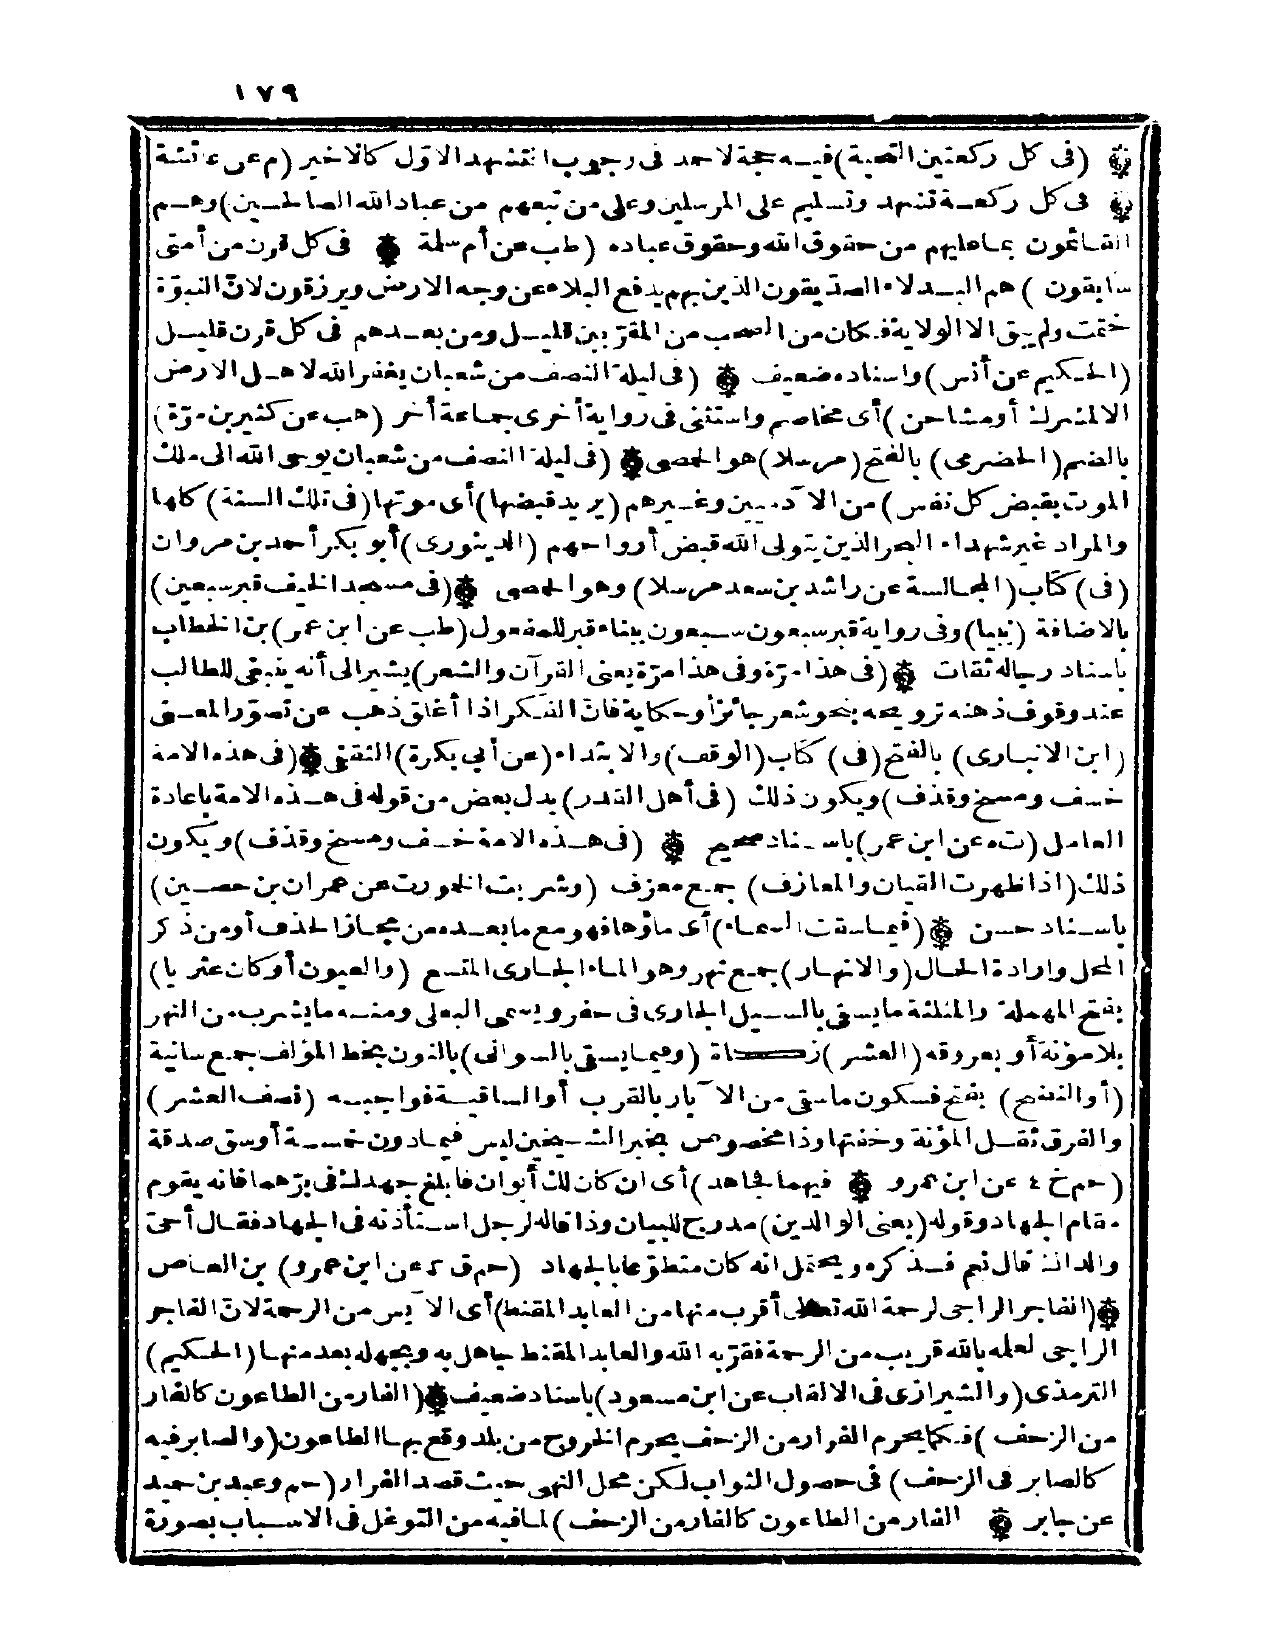 ١٧٩
(فى كل ركعتين التحية) فيه حجة لاحد فى وجوب التشهد الاوّل كالاخير (م عن عائشة
فى كل ركعة تشهد وتسليم على المرسلين وعلى من تبعهم من عباد الله الصالحين) وهم
القائمون بما عليهم من حقوق الله وحقوق عباده (طب عن أم سلمة فى كل قرن من أمتى
سابقون) هم البدلاء الصديقون الذين بهم يدفع البلاء عن وجه الارض ويرزقون لانّ النبوّة
ختمت ولم يبق الا الولاية فكان من الصحب من المقرّبين قليل ومن بعدهم فى كل قرن قليل
(الحكيم عن أنس) واسناده ضعيف (فى ليلة النصف من شعبان يغفر الله لاهل الارض
الا لمشرك أو مشاحن) أى مخاصم واستثنى فى رواية أخرى جماعة أخر (هب عن كثير بن مرّة)
بالضم (الحضرمى) بالفتح (مرسلا) هو الحمصى (فى ليلة النصف من شعبان يوحى الله الى ملك
الموت بقبض كل نفس) من الآدميين وغيرهم (يريد قبضها) أى موتها (فى تلك السنة) كلها
والمراد غير شهداء البحر الذين يتولى الله قبض أرواحهم (الدينورى) أبو بكر أحمد بن مروان
(فى) كتاب (المجالسة عن راشد بن سعد مرسلا) وهو الحمصى (فى مسجد الخيف قبر سبعين)
بالاضافة (نبيا) وفى رواية قبر سبعون سبعون ببناء قبر للمفعول (طب عن ابن عمر) بن الخطاب
باسناد رجاله ثقات (فى هذا مرّة وفى هذا مرّة يعنى القرآن والشعر) يشير الى أنه ينبغى للطالب
عند وقوف ذهنه ترويحه بنحو شعر جائز أو حكاية فانّ الفكر اذا أغلق ذهب عن تصوّر المعنى
(ابن الانبارى) بالفتح (فى) كتاب (الوقف) والابتداء (عن أبى بكرة) الثقفى (فى هذه الامة
خسف ومسخ وقذف) ويكون ذلك (فى أهل القدر) بدل بعض من قوله فى هذه الامة باعادة
العامل (ت ه عن ابن عمر) باسناد صحيح (فى هذه الامة خسف ومسخ وقذف) ويكون
ذلك (اذا ظهرت القيان والمعازف) جمع معزف (وشربت الخور ت عن عمران بن حصين)
باسناد حسن (فيما سقت السماء) أى ماؤها فهو مع ما بعده من مجاز الحذف أو من ذكر
المحل وارادة الحال (والانهار) جمع نهر وهو الماء الجارى المتسع (والعيون أو كان عثريا)
بفتح المهملة والمثلثة ما يسقى بالسيل الجارى فى حفر ويسمى البعلى ومنه ما يشرب من النهر
بلا مؤنة أو بعروقه (العشر) زكاة (وفيما يسقى بالسوانى) بالنون بخط المؤلف جمع سانية
(أو النضح) بفتح فسكون ما سقى من الآبار بالقرب أو الساقية فواجبه (نصف العشر)
والفرق ثقل المؤنة وخفتها وذا مخصوص بخبر الشيخين ليس فيما دون خمسة أوسق صدقة
(حم خ ٤ عن ابن عمرو فيهما فجاهد) أى ان كان لك أبوان فابلغ جهدك فى برّهما فانه يقوم
مقام الجهاد وقوله (يعنى الوالدين) مدرج للبيان وذا قاله لرجل استأذنه فى الجهاد فقال أحىّ
والداك قال نعم فذكره ويحتمل انه كان متطوّعا بالجهاد (حم ق ٣ عن ابن عمرو) بن العاص
(الفاجر الراجى لرحمة الله تعالى أقرب منها من العابد المقنط) أى الآيس من الرحمة لانّ الفاجر
الراجى لعلمه بالله قريب من الرحمة فقرّبه الله والعابد المقنط جاهل به وبجهله بعد منها (الحكيم)
الترمذى (والشيرازى فى الالقاب عن ابن مسعود) باسناد ضعيف (الفار من الطاعون كالفار
من الزحف) فكما يحرم الفرار من الزحف يحرم الخروج من بلد وقع بها الطاعون (والصابر فيه
كالصابر فى الزحف) فى حصول الثواب لكن محل النهى حيث قصد الفرار (حم وعبد بن حميد
عن جابر الفار من الطاعون كالفار من الزحف) لما فيه من التوغل فى الاسباب بصورة